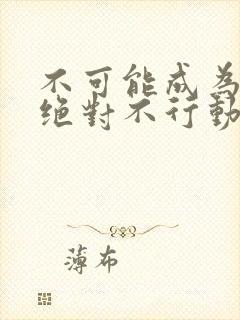 不可能成為
絕對不行動
薄布